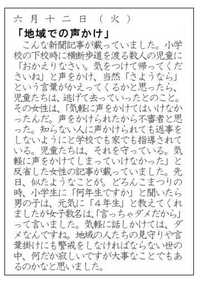 六月十二日（火）
「地域での声かけ」
こんな新聞記事が載っていました。小学
校の下校時に横断歩道を渡る数人の児童に
「おかえりなさい。気をつけて帰ってくだ
さいね」と声をかけ、当然「さようなら」
という言葉がかえってくるかと思ったら、
児童たちは、逃げて去っていったとのこと。
その女性は、「気軽に声をかけてはいけなか
ったんだ。声をかけられたから不審者と思
った。知らない人に声かけられても返事を
しないようにと学校でも家でも指導されて
いる。児童たちは、それを守っている。気
軽に声をかけてしまっていけなかった」と
反省した女性の記事が載っていました。先
日、似たようなことが、どろんこまつりの
時、小学生に「何年生ですか」と聞いたら
男の子は、元気に「４年生」と教えてくれ
ましたが女子数名は、「言っちゃダメだから」
って言いました。気軽に話しかけては、ダ
メなんですね。地域の人たちの見守りや言
葉掛けにも警戒をしなければならない世の
中、何だか寂しいですが大事なことでもあ
るのかなと思いました。